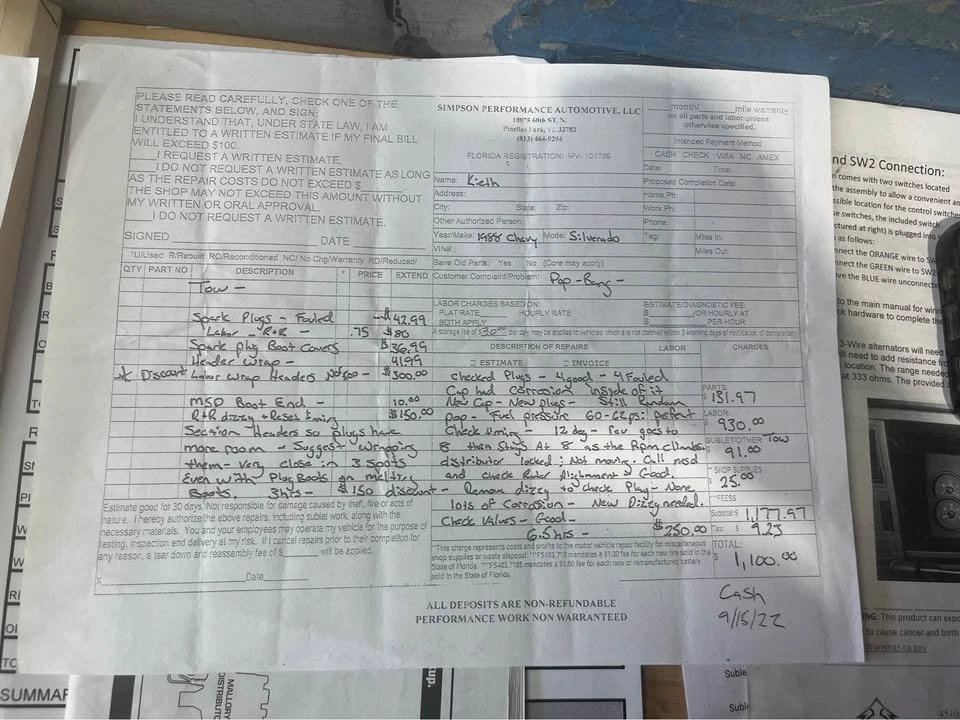 PLEASE READ CAREFULLY, CHECK ONE OF THE
STATEMENTS BELOW, AND SIGN:
I UNDERSTAND THAT, UNDER STATE LAW, I AM
ENTITLED TO A WRITTEN ESTIMATE IF MY FINAL BILL
WILL EXCEED $100.
___I REQUEST A WRITTEN ESTIMATE.
___I DO NOT REQUEST A WRITTEN ESTIMATE AS LONG
AS THE REPAIR COSTS DO NOT EXCEED $
THE SHOP MAY NOT EXCEED THIS AMOUNT WITHOUT
MY WRITTEN OR ORAL APPROVAL.
___I DO NOT REQUEST A WRITTEN ESTIMATE.
SIGNED DATE
*U/Used R/Rebuilt RC/Reconditioned NC/ No Chg/Warranty RD/Reduced/
SIMPSON PERFORMANCE AUTOMOTIVE, LLC
10875 60th ST. N.
Pinellas Park, FL 33782
(813) 464-9294
FLORIDA REGISTRATION: MV- 101789
___month/___mile warranty
on all parts and labor unless
otherwise specified.
Intended Payment Method
CASH CHECK VISA MC AMEX
Date: Time:
Name: Kieth
Proposed Completion Date:
Address:
Home Ph:
City: State: Zip:
Work Ph:
Other Authorized Person:
Phone:
Year/Make: 1988 Chevy Model: Silverado Tag: Miles In:
VIN#: Miles Out:
Save Old Parts: Yes No (Core may apply)
Customer Complaint/Problem: Pop-Bang-
QTY PART NO DESCRIPTION * PRICE EXTEND
Tow -
Spark Plugs - Fouled $42.99
Labor - R+R - .75 $80
Spark plug Boot Covers $36.99
Header Wrap - 41.99
* Discount Labor Wrap Headers $300.00
MSD Boot End - 10.00
R+R dizzy + Reset timing $150.00
Section Headers so plugs have
more room - Suggest wrapping
them - Very close in 3 spots
Even with Plug Boots on melting
Boots. 3hrs - $150 discount -
Estimate good for 30 days. Not responsible for damage caused by theft, fire or acts of
nature. I hereby authorize the above repairs, including sublet work, along with the
necessary materials. You and your employees may operate my vehicle for the purpose of
testing, inspection and delivery at my risk. If I cancel repairs prior to their completion for
any reason, a tear down and reassembly fee of $ will be applied.
X Date
LABOR CHARGES BASED ON:
FLAT RATE HOURLY RATE
BOTH APPLY
ESTIMATE/DIAGNOSTIC FEE:
$ /OR HOURLY AT
$ PER HOUR
A storage fee of $ per day may be applied to vehicles which are not claimed within 3 working days of notification of completion.
DESCRIPTION OF REPAIRS LABOR CHARGES
ESTIMATE INVOICE
Checked Plugs - 4 good - 4 Fouled
Cap had corrosion inside of it
New Cap - New Plugs - Still Random
pop - Fuel pressure 60-62psi perfect
Check timing - 12 deg - Rev goes to
8 then Stays At 8 as the Rpm climbs
distributor locked; Not moving. Call msd
and check Rotor Alignment Good.
Remove dizzy to check Play - None
lots of Corrosion - New Dizzy needed.
Check Valves - Good -
6.5hrs - $250.00
PARTS
$ 131.97
LABOR:
$ 930.00
SUBLET/OTHER Tow
$ 91.00
*SHOP SUPPLIES
$ 25.00
**FEES
Subtotal $ 1,177.97
Tax: $ 9.23
TOTAL:
$ 1,100.00
*This charge represents costs and profits to the motor vehicle repair facility for miscellaneous
shop supplies or waste disposal. **FS403.718 mandates a $1.00 fee for each new tire sold in the
State of Florida. **FS403.7185 mandates a $1.50 fee for each new or remanufactured battery
sold in the State of Florida.
Cash
9/15/22
ALL DEPOSITS ARE NON-REFUNDABLE
PERFORMANCE WORK NON WARRANTEED
nd SW2 Connection:
comes with two switches located
the assembly to allow a convenient an
ssible location for the control switches
se switches, the included switch
ctured at right) is plugged into
as follows:
nnect the ORANGE wire to SW
nnect the GREEN wire to SW2
ve the BLUE wire unconnected
to the main manual for wirin
ck hardware to complete the
3-Wire alternators will need
ll need to add resistance fr
location. The range needed
at 333 ohms. The provided
NG: This product can expo
to cause cancer and birth
Warnings.ca.gov
SUMMAR
MALLORY
DISTRIBUTO
up.
Suble
Suble